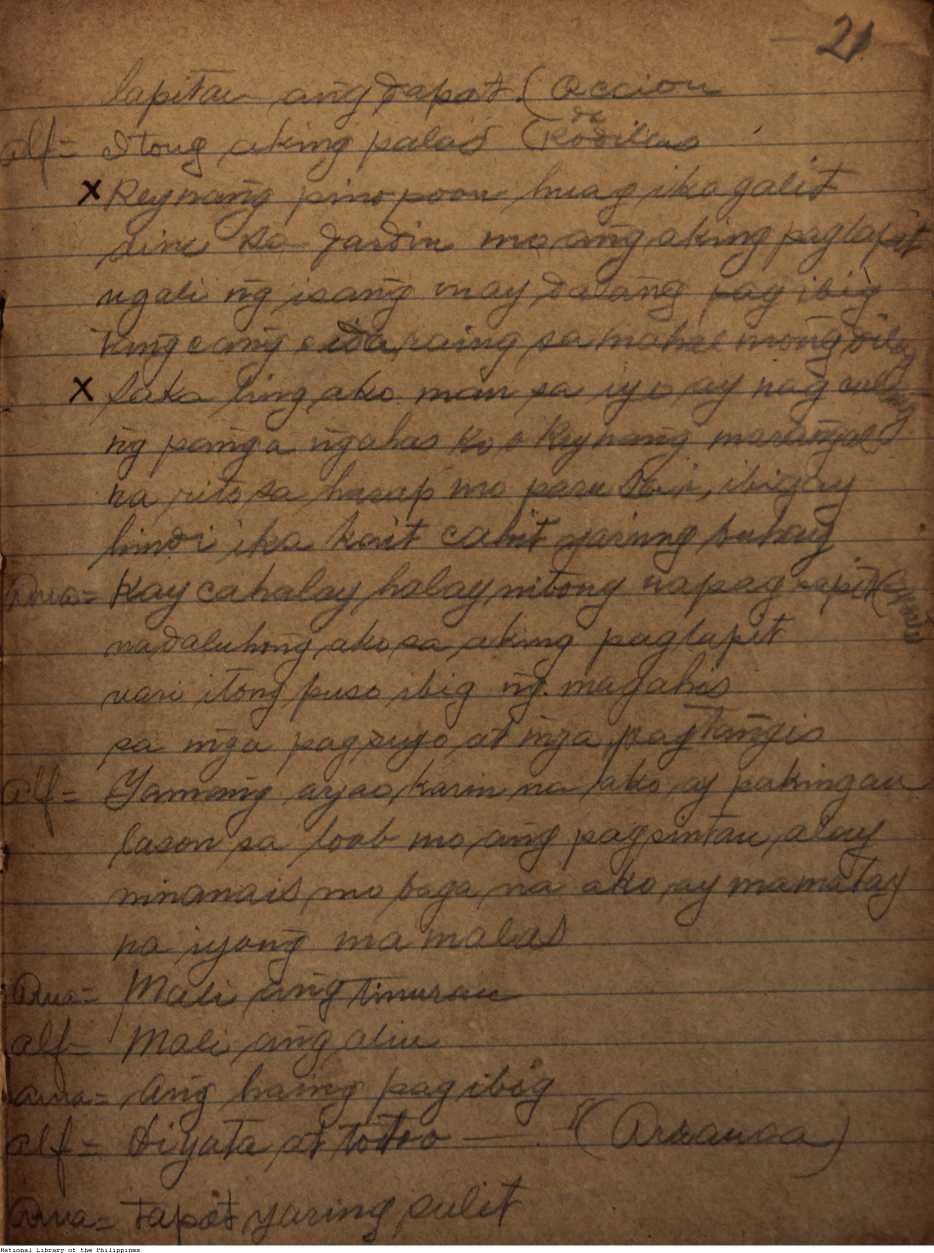 21
lapitan ang dapat. (Accion
alf= Itong aking palad (de Rodillas
x Reynang pinopoon huag ika galit
dine sa jardin mo ang aking paglapit
ugali ng isang may dalang pag ibig
kung cang sa mahal mong
x Saka ling ako man sa iyo ay nag
ng panga ngahas ko o Reynang marangal
na rito sa harap mo ibigay
hindi ika kait cahit yaring buhay
Ana= Kay cahalay halay nitong napag sapit (aparte
nadaluhong ako sa aking paglapit
uari itong puso ibig ng magahis
sa mga pagsuyo at mga pagtangis
alf= Yamang ayao karin na ako ay pakingan
lason sa loob mo ang pagsintau alay
ninanais mo baga na ako ay mamatay
na iyong ma malas
Ana= Mali ang tinuran
alf= Mali ang aliu
Ana= Ang haing pag ibig
alf= Diyata at totoo — (Arranca)
Ana= tapat yaring sulit
National Library of the Philippines